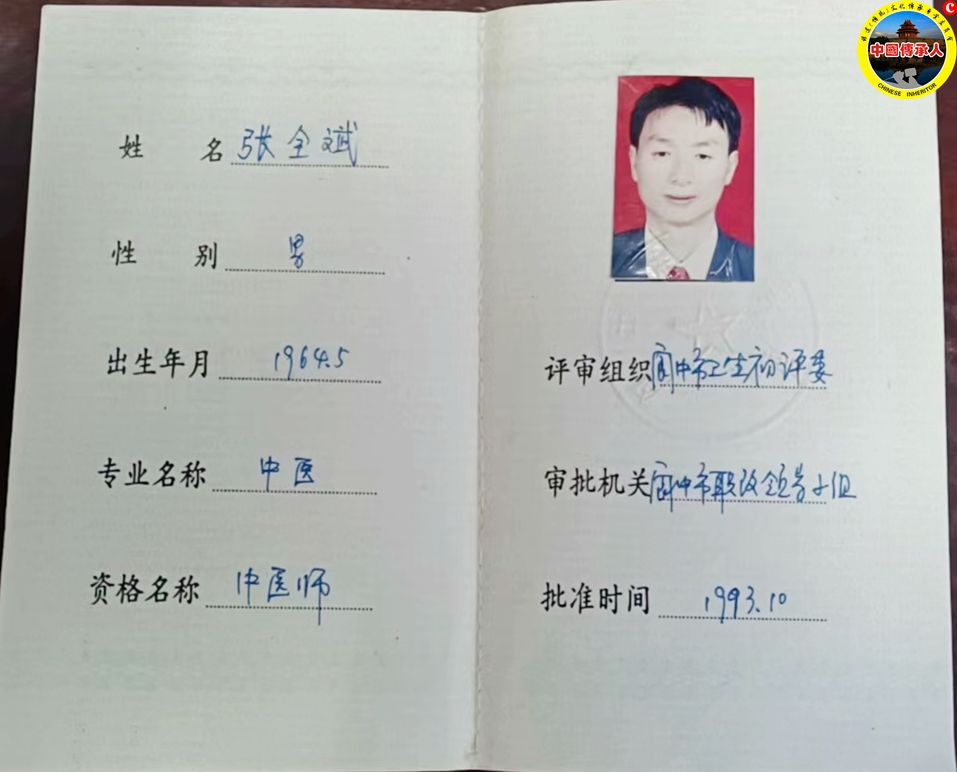 姓名 张全斌
性别 男
出生年月 1964.5
专业名称 中医
资格名称 中医师
评审组织 阆中市卫生初评委
审批机关 阆中市职改领导小组
批准时间 1993.10
中國傳承人
CHINESE INHERITOR
C